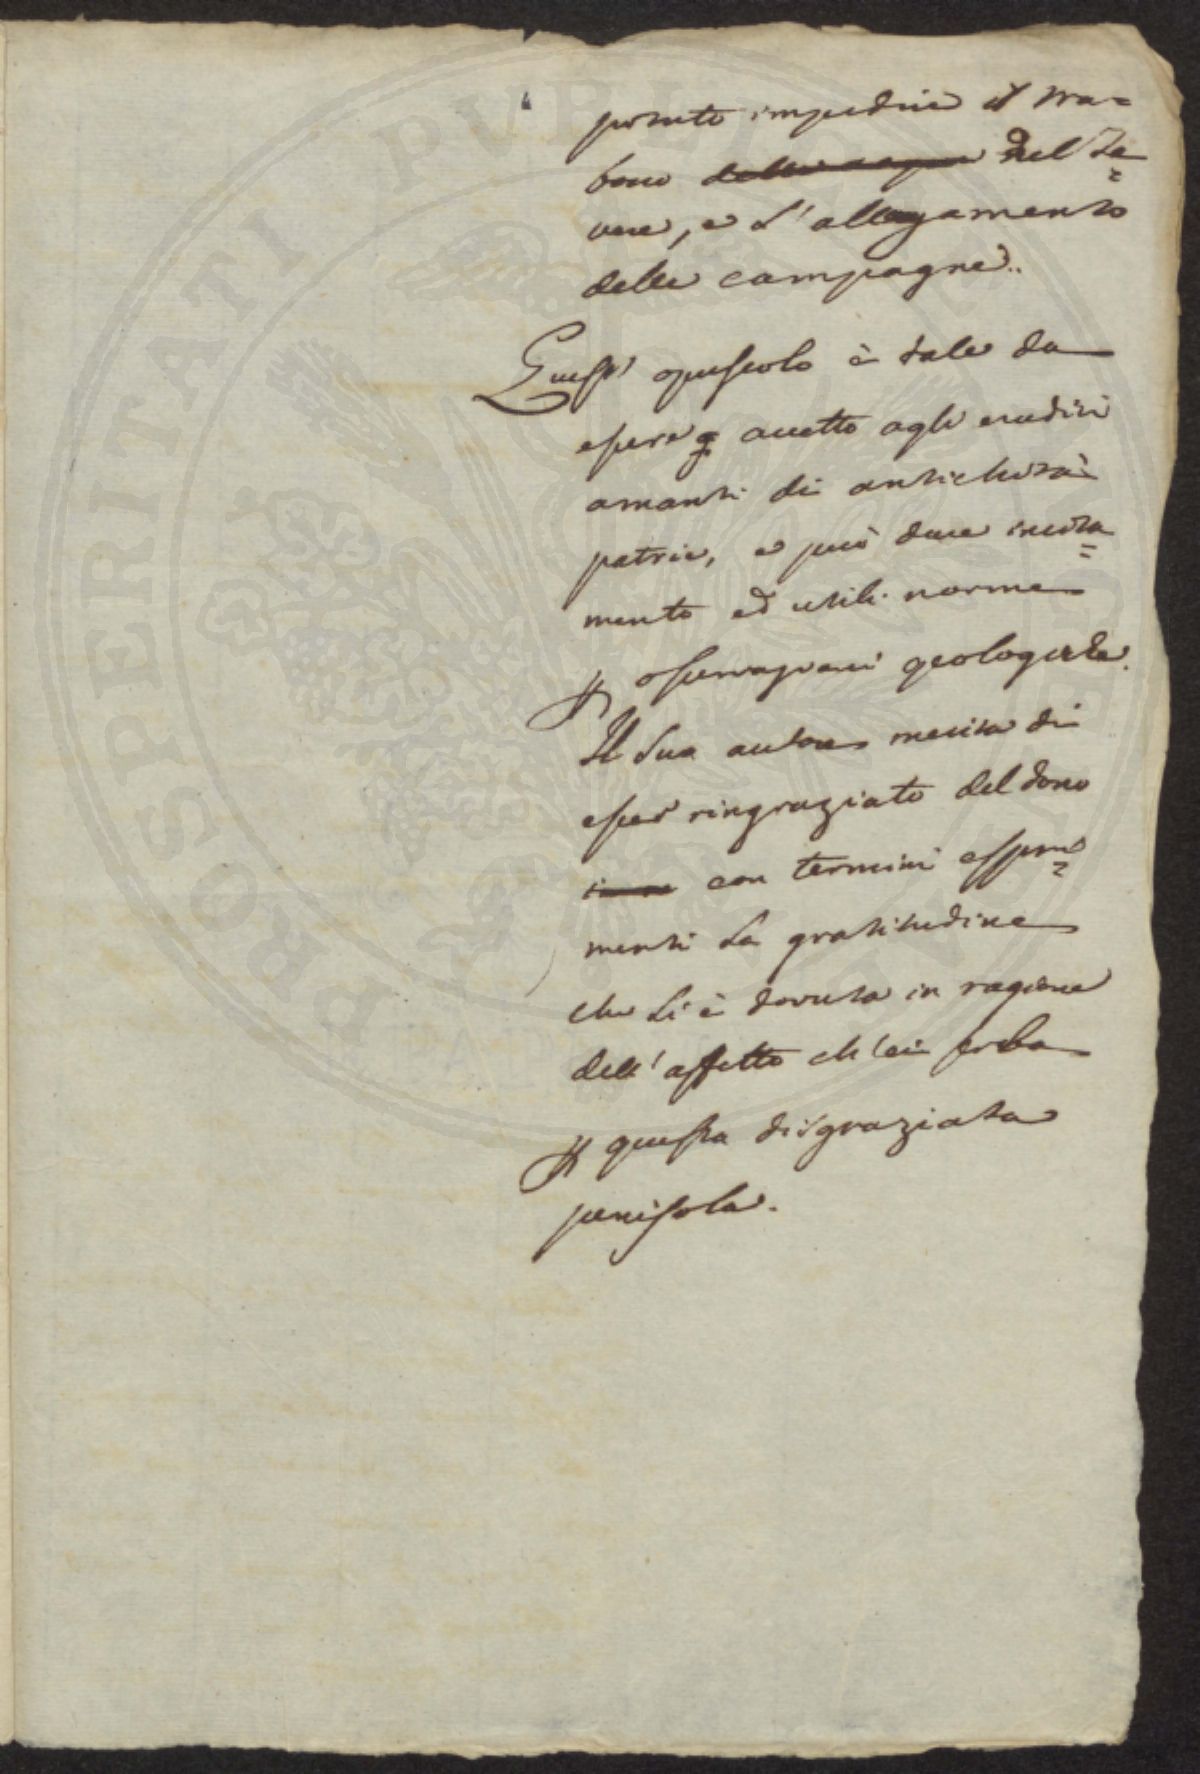 potuto impedire il tra=
bocco delle acque del Te=
vere, e l'allagamento
delle campagne..
Quest' opuscolo è tale da
essere accetto agli eruditi
amanti di antichità
patrie, e può dare incita=
mento ed utili norme
osservazioni geologiche.
Il suo autore merita di
esser ringraziato del dono
con termini espri=
menti la gratitudine
che li è dovuta in ragione
dell' affetto ch'ei serba
questa disgraziata
penisola.
PROSPERITATI PUBLICAE